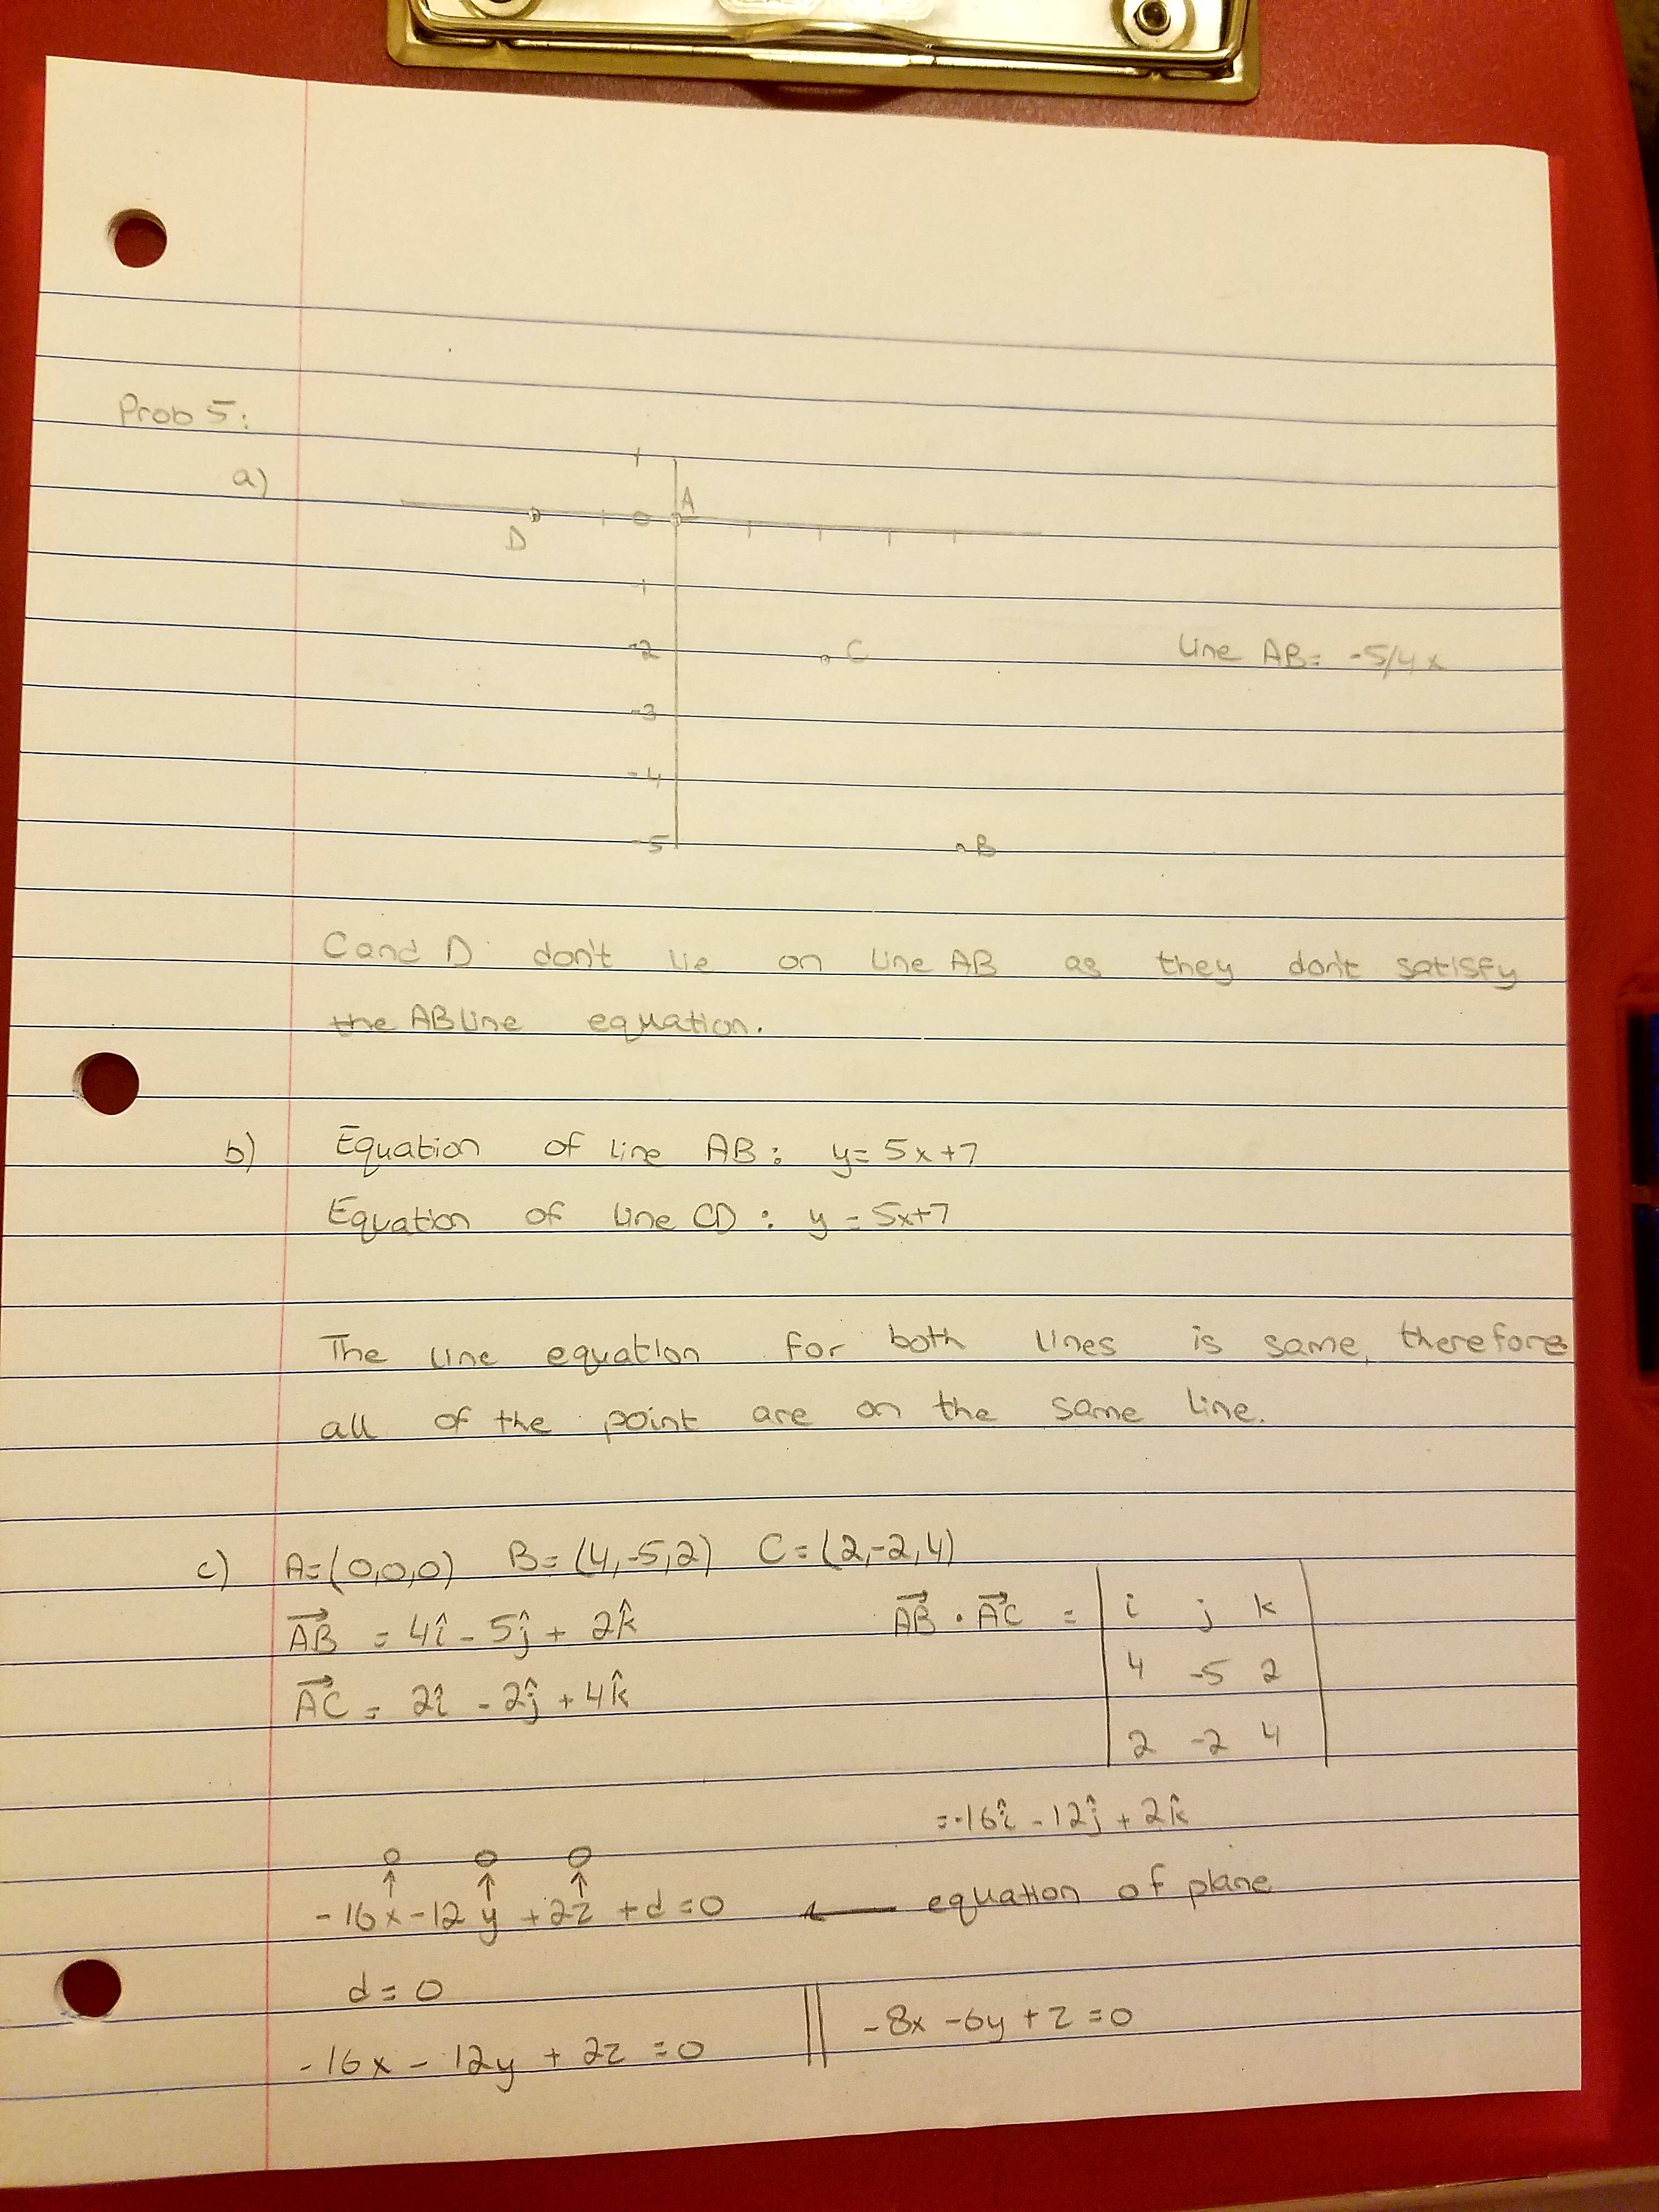 Prob 5:
a)
1
A
D
0
-1
-2
C
Line AB= -5/4x
-3
-4
-5
B
C and D don't lie on line AB as they don't satisfy
the AB line equation.
b) Equation of line AB: y= 5x+7
Equation of line CD: y = 5x+7
The line equation for both lines is same, therefore
all of the point are on the same line.
c) A=(0,0,0) B= (4,-5,2) C=(2,-2,4)
AB = 4î - 5ĵ + 2k̂
AC = 2î - 2ĵ + 4k̂
AB · AC = | i j k |
4 -5 2
2 -2 4
=-16î - 12ĵ + 2k̂
0 0 0
↑ ↑ ↑
-16x-12y +2z +d=0 ← equation of plane
d=0
-16x - 12y + 2z =0 || -8x -6y + z =0